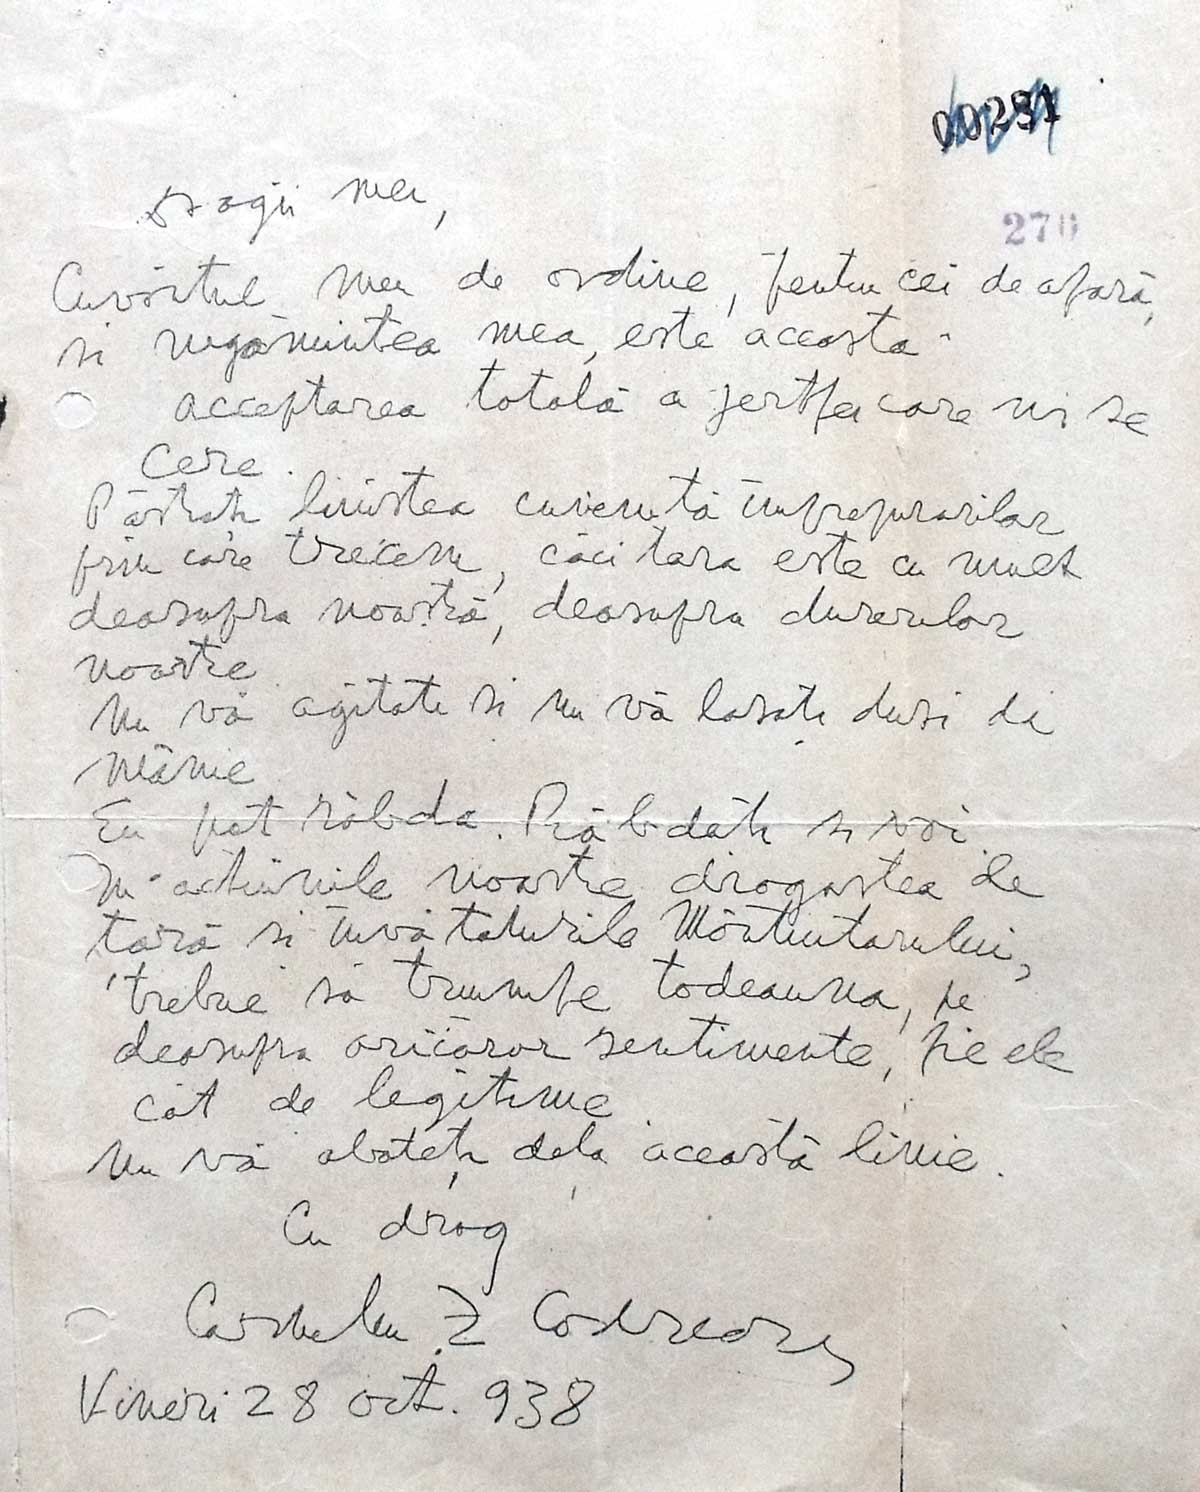 00281
270
Dragii mei,
Cuvântul meu de ordine, pentru cei de afară,
si rugămintea mea, este aceasta:
acceptarea totală a jertfei care ni se
cere.
Păstrati linistea cuvenită împrejurarilor
prin care trecem, căci tara este cu mult
deasupra noastră, deasupra durerilor
noastre
Nu vă agitati si nu vă lasați dusi de
mânie
Eu pot răbda. Răbdăti si voi.
In actiunile noastre dragostea de
tară si învătaturile Mântuitorului,
trebue să triumfe todeauna, pe
deasupra oricăror sentimente, fie ele
cât de legitime.
Nu vă abateți dela această linie.
Cu drag
Corneliu Z Codreanu
Vineri 28 oct. 938